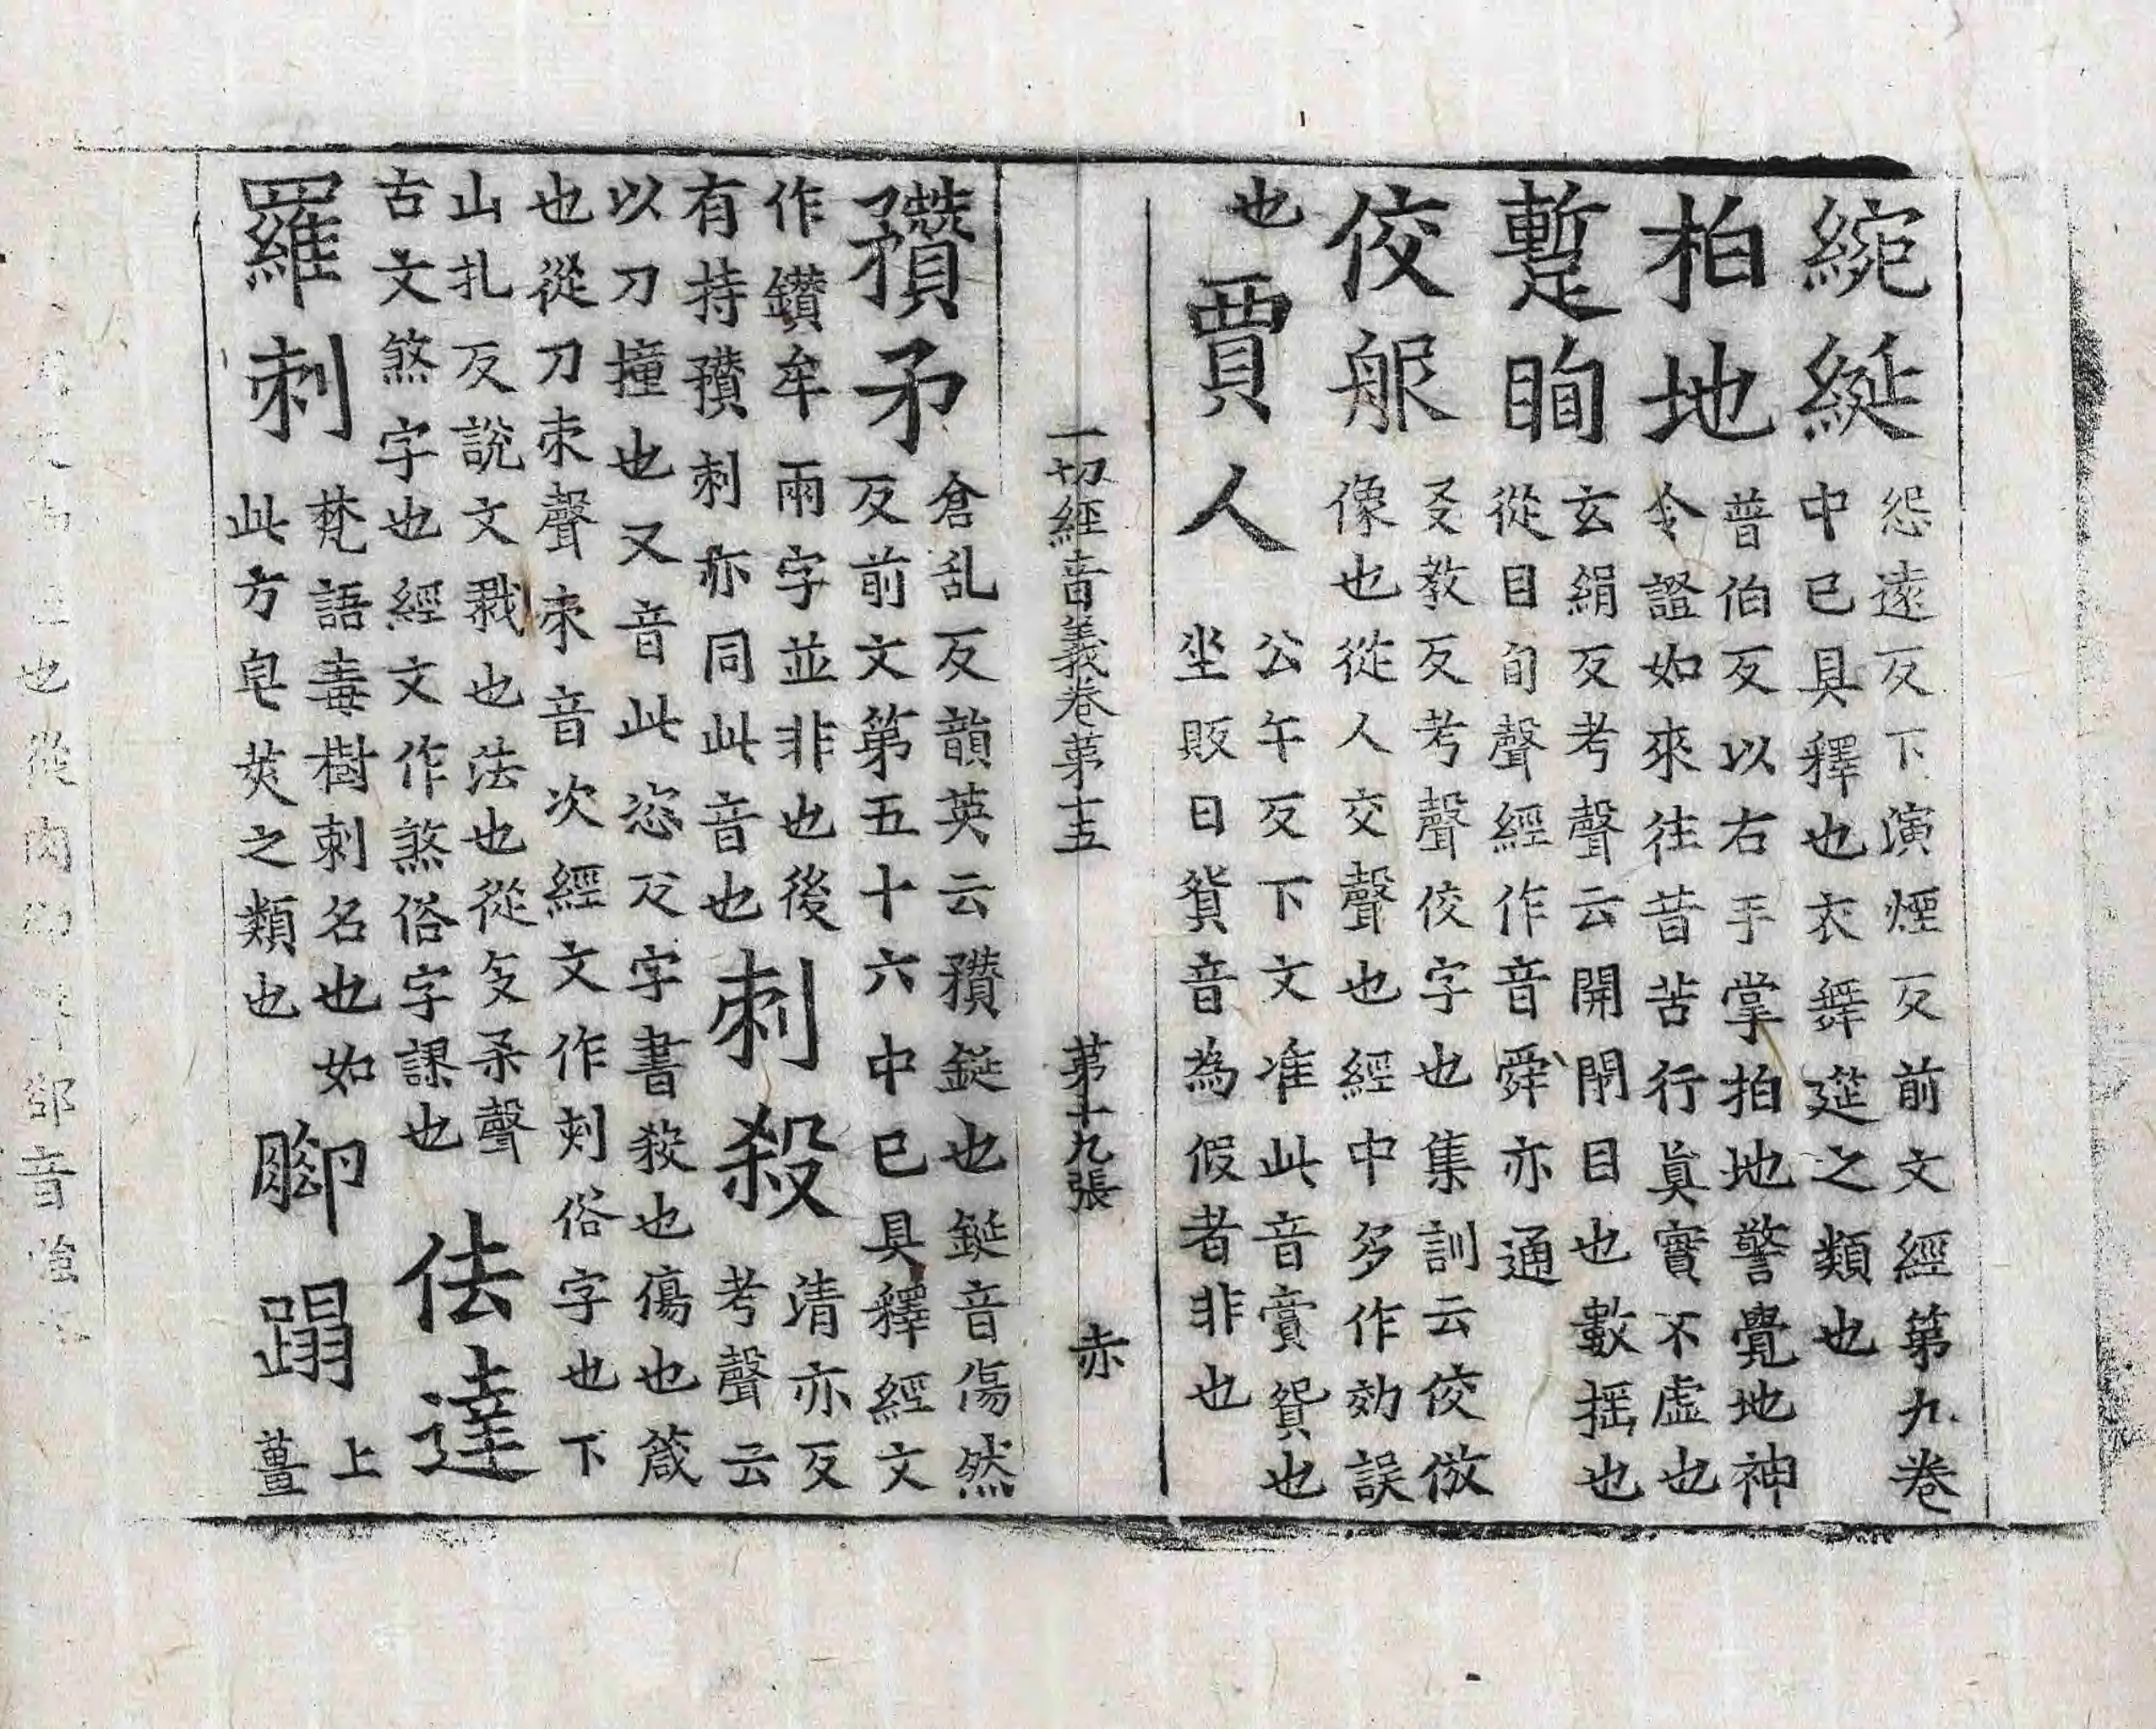 綩綖
怨遠反下演煙反前文經第九卷
中已具釋也衣舞筵之類也
柏地
普伯反以右手掌拍地警覺地神
令證如來往昔苦行眞實不虛也
蹔眴
玄絹反考聲云開閇目也數揺也
從目旬聲經作音舜亦通
佼䑽
爻教反考聲佼字也集訓云佼倣
像也從人交聲也經中多作効誤
也
賈人
公午反下文准此音賣貨也
坐販日賀音為假者非也
一切經音義卷苐十五
苐十九張
赤
穳矛
倉乱反韻英云穳鋋也鋋音傷然
反前文第五十六中已具釋經文
作鑽牟兩字並非也後
有持穳刺亦同此音也
刺殺
清亦反
考聲云
以刀撞也又音此恣反字書殺也傷也箴
也從刀朿聲朿音次經文作刾俗字也下
山扎反說文戮也法也從攴杀聲
古文煞字也經文作煞俗字謬也
佉達
羅刺
梵語毒樹刺名也如
此方皂莢之類也
腳蹋
上
薑